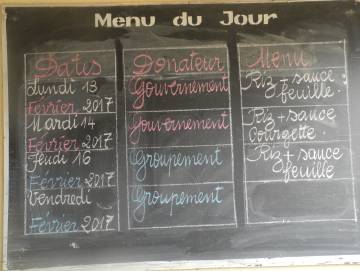 Menu du Jour
Dates Donateur Menu
Lundi 13 Gouvernement Riz + sauce
Février 2017 feuille.
Mardi 14 Gouvernement Riz + sauce
Février 2017 Courgette.
Jeudi 16 Groupement Riz + sauce
Février 2017 feuille
Vendredi Groupement
Février 2017